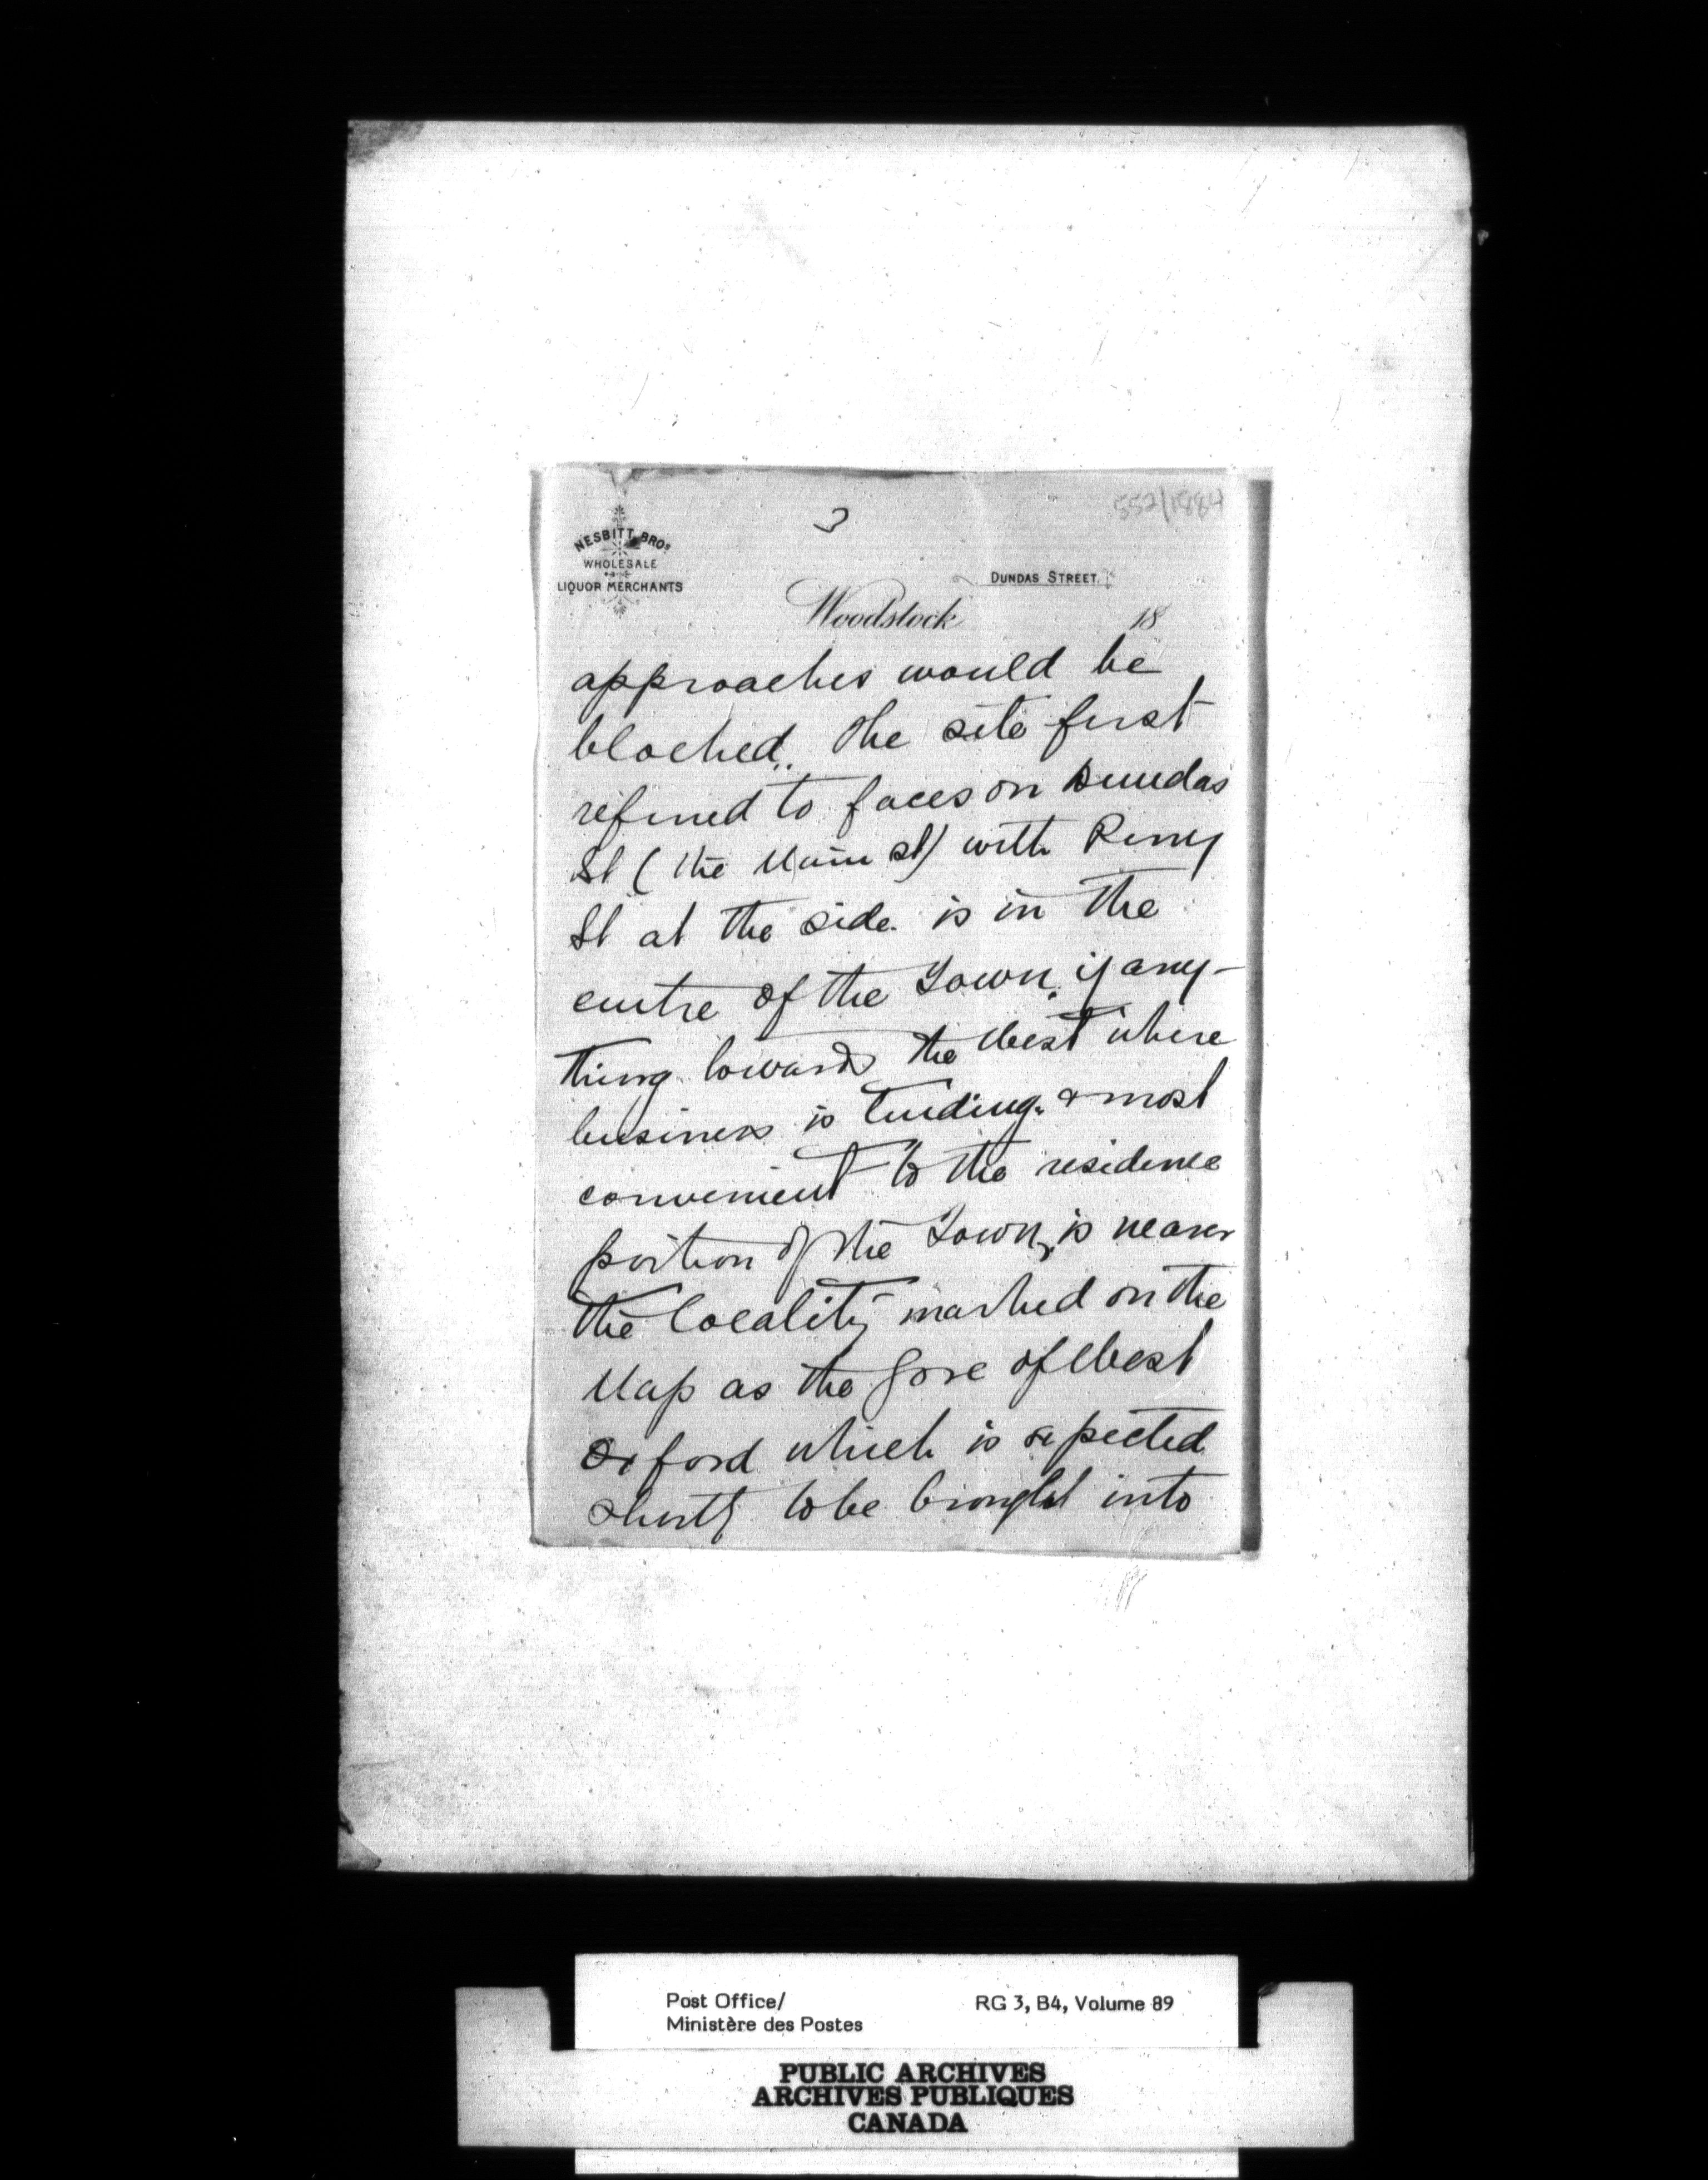 3
552/1884
NESBITT BROS
WHOLESALE
LIQUOR MERCHANTS
DUNDAS STREET.
Woodstock 18
approaches would be
blocked. The site first
refered to faces on Dundas
St (the Main st) with Perry
St at the side. is in the
centre of the Town, if any-
thing towards the West where
business is tending. & most
convenient to the residence
portion of the Town, is nearer
the locality marked on the
Map as the Gore of West
Oxford which is expected
shortly to be brought into
Post Office/
Ministère des Postes
RG 3, B4, Volume 89
PUBLIC ARCHIVES
ARCHIVES PUBLIQUES
CANADA